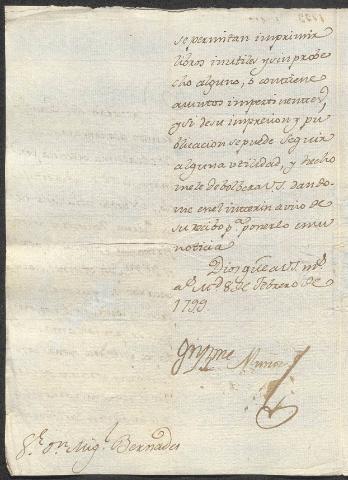 se permitan imprimir
libros inutiles y sin probe
cho alguno, o contiene
asuntos impertinentes,
y si de su impresion y pu
blicacion se puede seguir
alguna utilidad, y hecho
me le debolbera VS. dando
me en el interin aviso de
su recibo pa. ponerlo en su
noticia
Dios gue. a VS. ms.
as. Md. 8 de Febrero de
1799.
Muñoz
Sr. Dn. Migl. Bernades